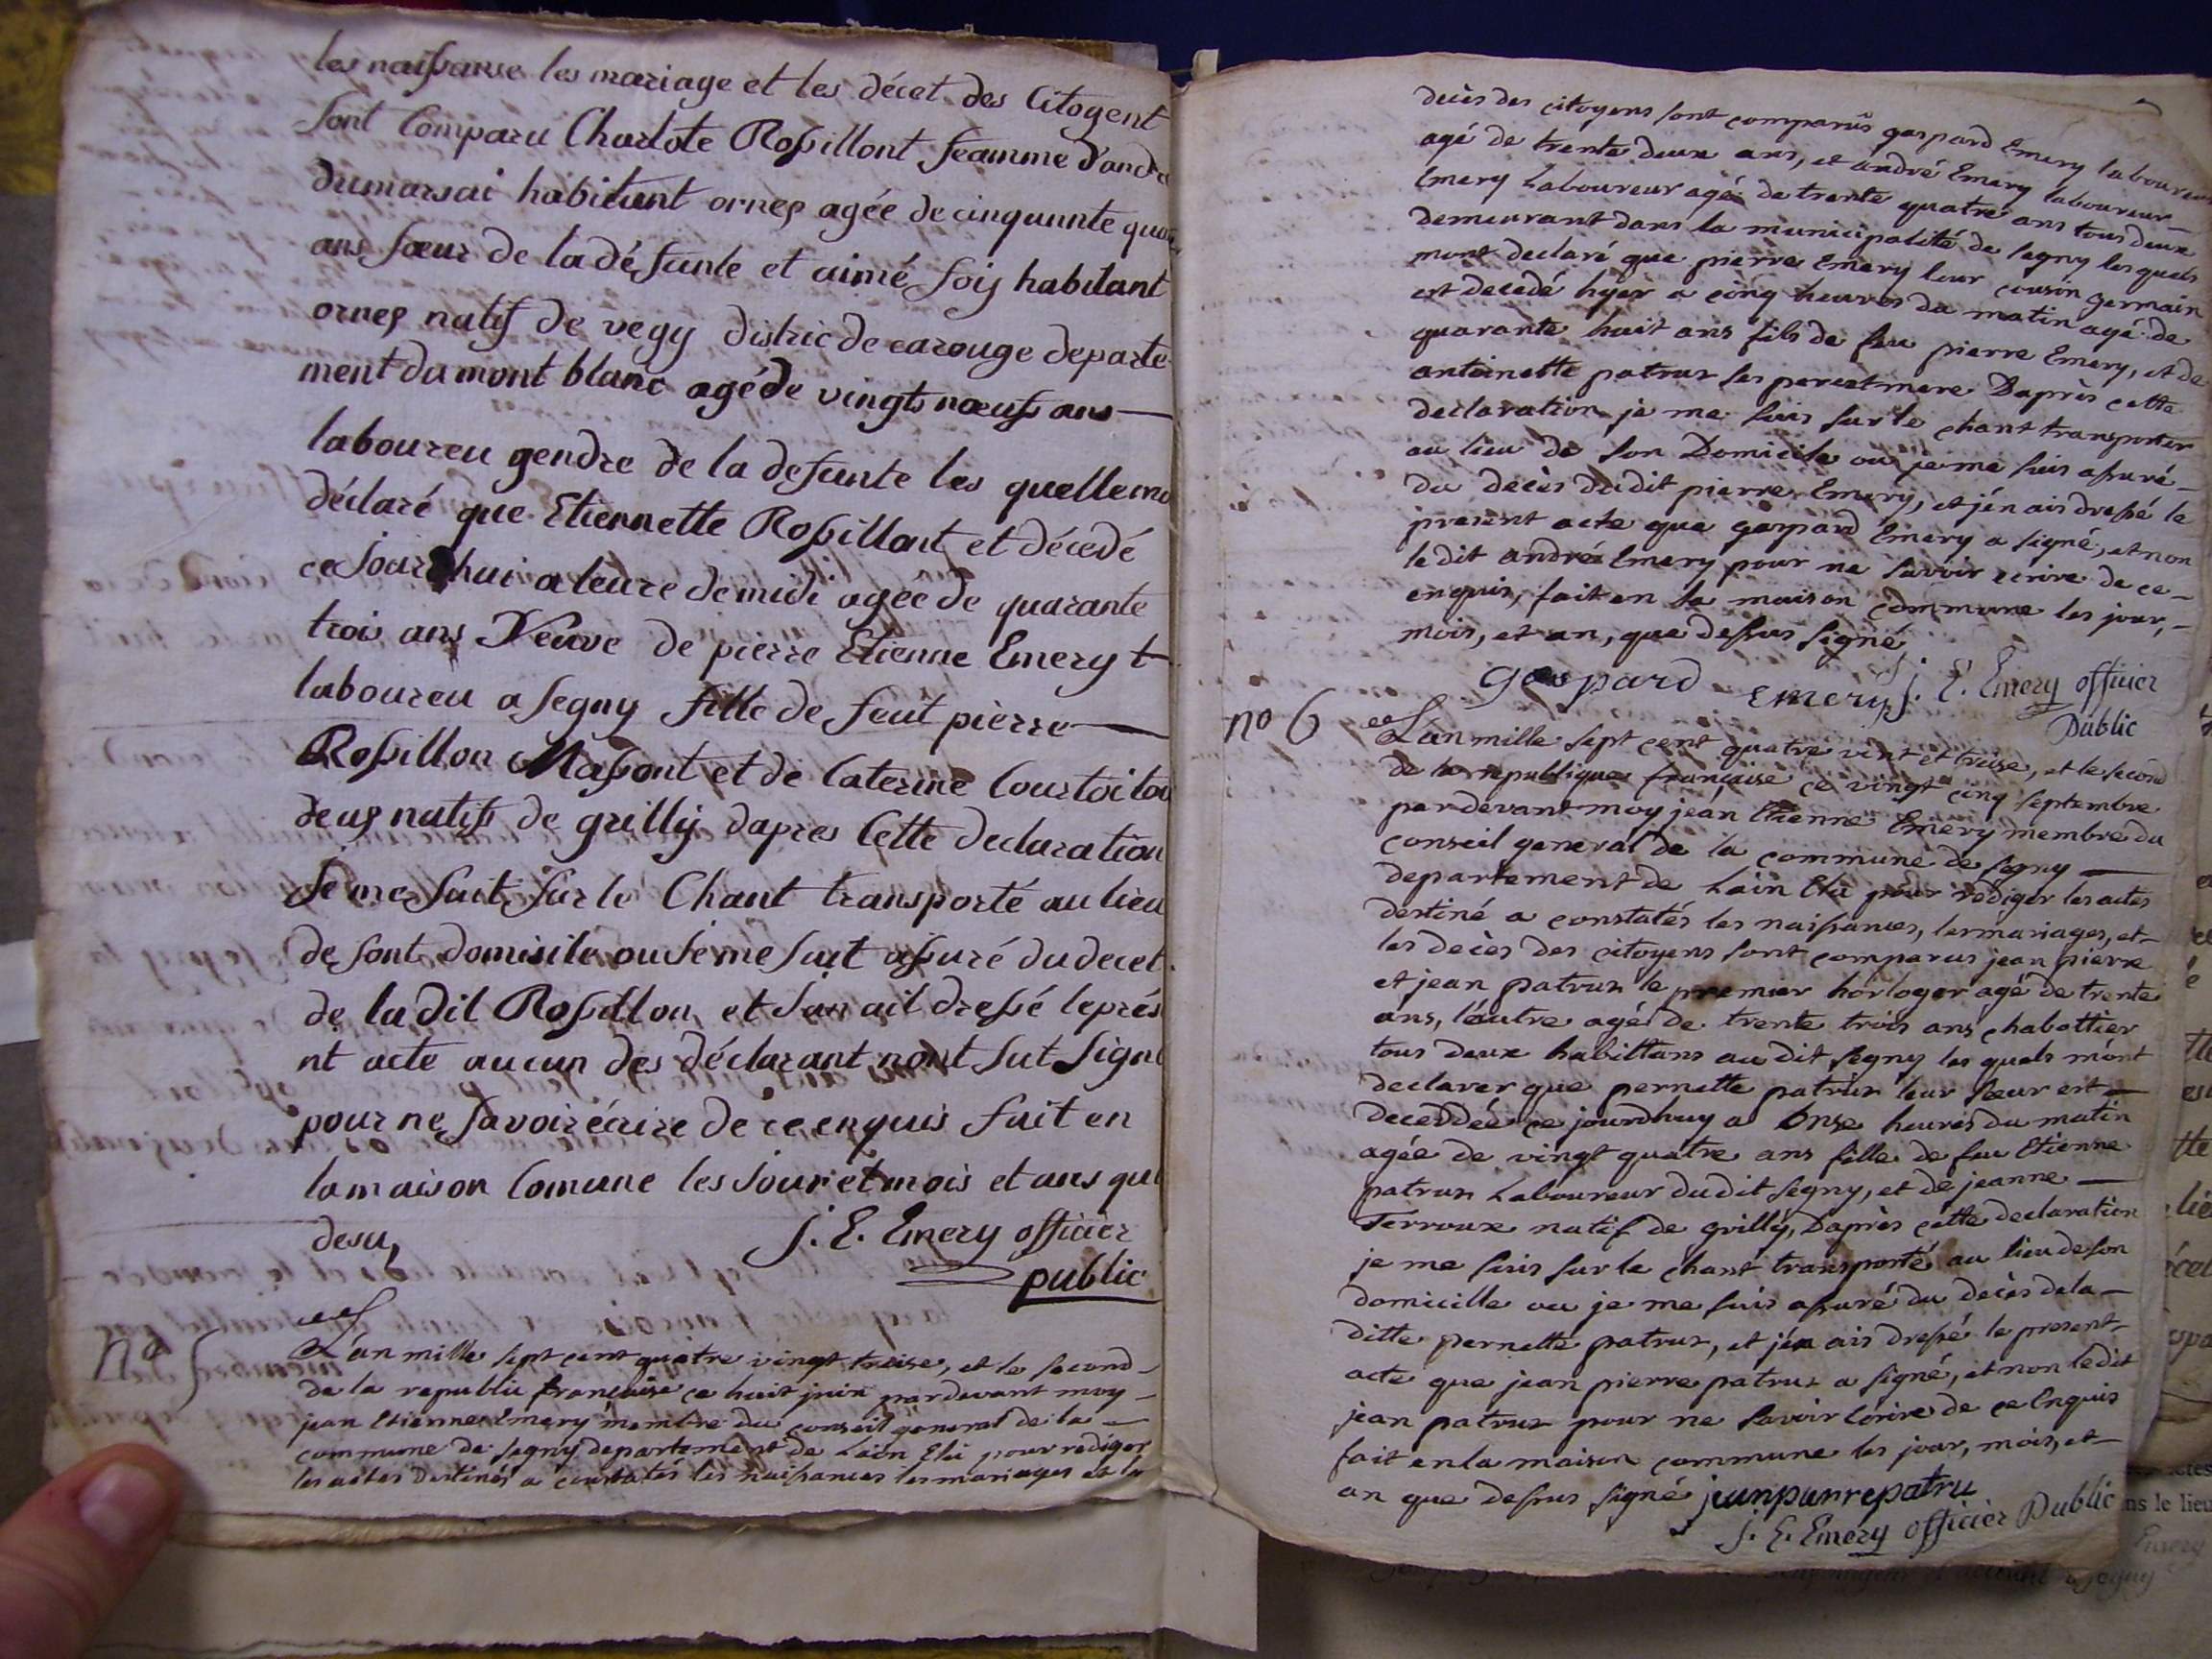 les naissanse les mariage et les décet des Citogent
sont Comparu Charlote Rossillont feamme d'andre
dumarsai habitant ornex agée de cinquante quatre
ans sœur de la défunte et aimé foij habitant
ornex natif de vegy distric de carouge departe
ment du mont blanc agé de vingts nœufs ans —
laboureu gendre de la defunte les quelle mo
déclaré que Etiennette Rossillont et décedé
ce jourdhui a leure de midi agée de quarante
trois ans Veuve de pierre Etienne Emery t
laboureu a Segny fille de feut pierre —
Rossillon Massont et de Caterine Courtoi tou
deux natifs de grilly dapres Cette declaration
Je me suit sur le Chant transporté au lieu
de sont domisile ou Je me suit assuré du decet
de la dit Rossillon et J'an ait dressé le prés
nt acte aucun des déclarant n'ont sut Signé
pour ne savoir écrire de ce enquis fait en
la maison Comune les Jour et mois et ans que
desu,
J. E. Emery officier
public
n° 5
L'an mille sept cent quatre vingt treise, et le second
de la republic françaisse ce huit juin pardevant moy
jean Etienne Emery membre du conseil general de la
commune de Segny departement de Lain Elu pour rediger
les actes destinés a constatés les naissances les mariages et le
decès des citoyens sont comparûs gaspard Emery laboureur
agé de trente deux ans, et andré Emery laboureur
Emery Laboureur agé de trente quatre ans tous deux
demeurant dans la municipalité de Segny les quels
mont declaré que pierre Emery leur cousin germain
est decedé hyer a cinq heures du matin agé de
quarante huit ans fils de feu pierre Emery, et de
antoinette patrux ses pere et mere Daprès cette
declaration je me suis sur le chant transporter
au lieu de son Domicile ou je me suis assuré
du decès dudit pierre Emery, et jén ais dressé le
present acte que gaspard Emery a signé, et non
le dit andré Emery pour ne savoir ecrire de ce
enquis, fait en la maison commune les jour,
mois, et an, que dessus signé
gaspard Emery J. E. Emery officier
Public
no 6
L'an mille sept cent quatre vint et treise, et le second
de la republique française ce vingt cinq septembre
pardevant moy jean Etienne Emery membre du
conseil general de la commune de Segny —
departement de Lain Elu pour rediger les actes
destiné a constatés les naissances, les mariages, et
les decès des citoyens sont comparus jean pierre
et jean patrux le premier horloger agé de trente
ans, l'autre agé de trente trois ans chabottier
tous deux habittans au dit Segny les quels m'ont
declarer que pernette patrux leur sœur est
decerdée ce jourdhuy a Onse heures du matin
agée de vingt quatre ans fille de feu Etienne
patrux Laboureur dudit Segny, et de jeanne —
Terroux natif de grilly, Daprès cette declaration
je me suis sur le chant transporté au lieu de son
domicille ou je me suis assuré du decès de la
ditte pernette patrux, et jén ais dressé le present
acte que jean pierre patrux a signé, et non ledit
jean patrux pour ne savoir Ecrire de ce Enquis
fait en la maison commune les jour, mois, et
an que dessus signé jeanpiarrepatru
J. E. Emery officier Public
ns le lieu